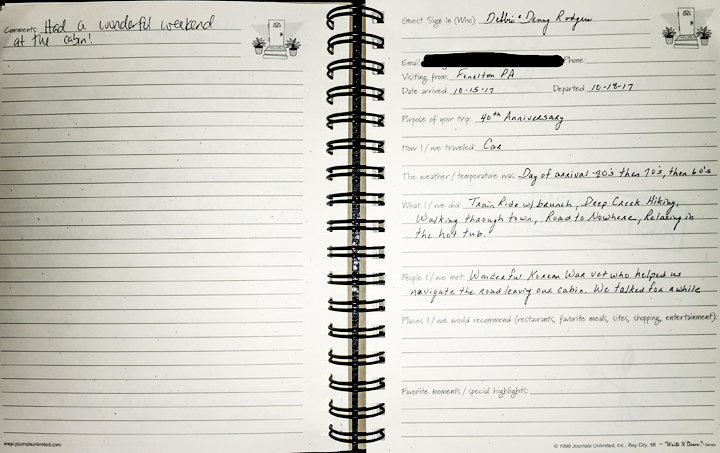 Comments: Had a wonderful weekend
at the cabin!
www.journalsunlimited.com
Guest Sign In (Who) Debbie & Denny Rodgers
Email: Phone:
Visiting from: Fenelton PA
Date arrived: 10-15-17 Departed: 10-18-17
Purpose of your trip: 40th Anniversary
How I / we traveled: Car
The weather / temperature was: Day of arrival -80's then 70's, then 60's
What I / we did: Train Ride w/ brunch, Deep Creek Hiking,
Walking through town, Road to Nowhere, Relaxing in
the hot tub.
People I / we met: Wonderful Korean War vet who helped us
navigate the road leaving our cabin. We talked for awhile
Places I / we would recommend (restaurants, favorite meals, sites, shopping, entertainment):
Favorite moments / special highlights:
© 1998 Journals Unlimited, Inc., Bay City, MI ~ "Write It Down" ~ Series